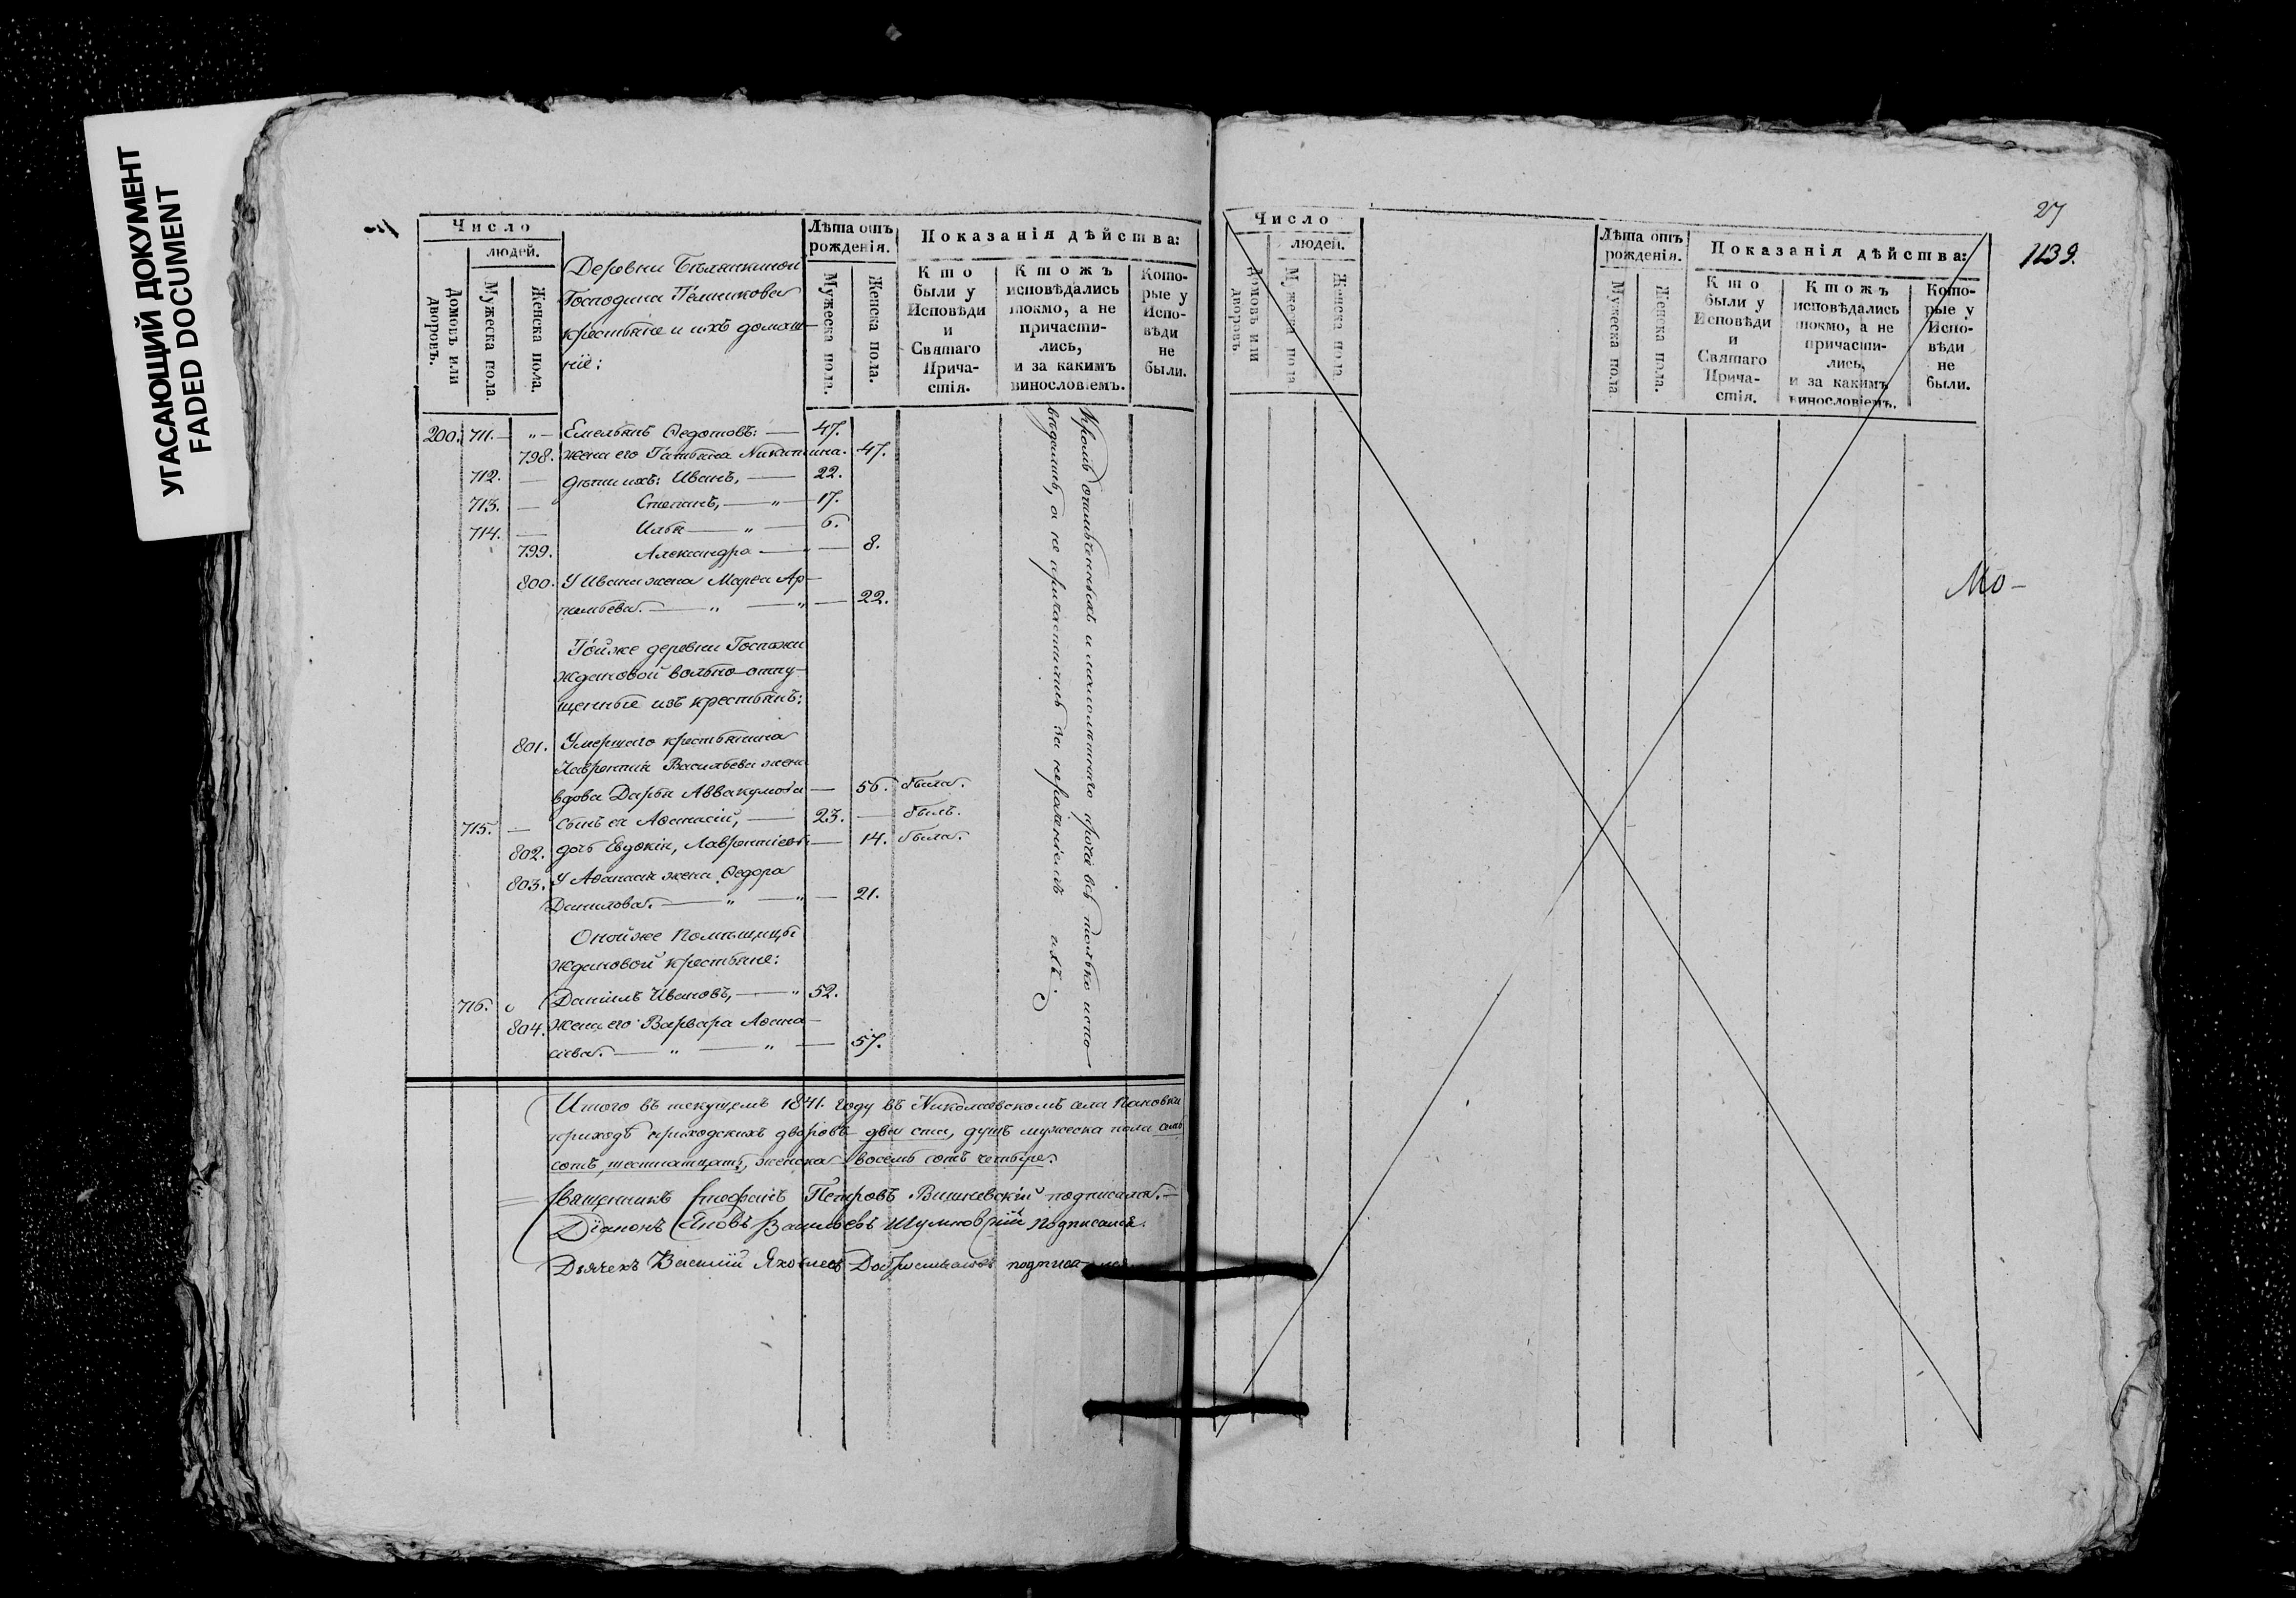 УГАСАЮЩИЙ ДОКУМЕНТ
FADED DOCUMENT
Число
людей.
Домовъ или дворовъ.
Мужеска пола.
Женска пола.
Деревни
Господина
крестьяне и ихъ домаш-
ніе:
Лѣта отъ рожденія.
Мужеска пола.
Женска пола.
Показанія дѣйства:
Кто были у Исповѣди и Святаго Прича-стія.
Ктожъ исповѣдались токмо, а не причасти-лись, и за какимъ винословіемъ.
Кото-рые у Испо-вѣди не были.
200. 711. — „ — Емельянъ Ѳедотовъ: — 47.
798. жена его Татьяна Никитина. 47.
712. — дѣти ихъ: Иванъ, — 22.
713. — Степанъ, — „ — 17.
714. — Илья — „ — 6.
799. Александра — „ — 8.
800. У Ивана жена Марѳа Ар-
темьева. — „ — „ — 22.
Тойже деревни Госпожи
Ждановой вольно-отпу-
щенные изъ крестьянъ:
801. Умершаго крестьянина
Лаврентія Васильева жена
вдова Дарья Аввакумова — 56. была.
715. — Сынъ ея Аѳанасій, — 23. — былъ.
802. дочь Евдокія, Лаврентіевы — 14. была.
803. У Аѳанасія жена Ѳедора
Данилова. — „ — „ — 21.
Онойже Помѣщицы
Ждановой крестьяне:
716. Даніилъ Ивановъ, — „ 52.
804. Жена его Варвара Аѳана-
сіева. — „ — „ — 57.
Кромѣ отмѣченныхъ и малолѣтнаго прочіе всѣ только испо-
вѣдались, а не причастились за нераченіемъ ихъ.
Итого въ текущемъ 1841. году въ Николаевскомъ села Пановки
приходѣ приходскихъ дворовъ двѣ сти, душъ мужеска пола семь
сотъ шестнатцать, женска восемь сотъ четыре.
Священникъ Стефанъ Петровъ Вишневскій подписалъ.—
Діаконъ Яковъ Васильевъ подписался.
Дьячекъ Василій Яковлевъ
27
1139.
Число
людей.
Домовъ или дворовъ.
Мужеска пола.
Женска пола.
Лѣта отъ рожденія.
Мужеска пола
Женска пола.
Показанія дѣйства:
Кто были у Исповѣди и Святаго Прича-стія.
Ктожъ исповѣдались токмо, а не причасти-лись, и за какимъ винословіемъ.
Кото-рые у Испо-вѣди не были.
Мо-